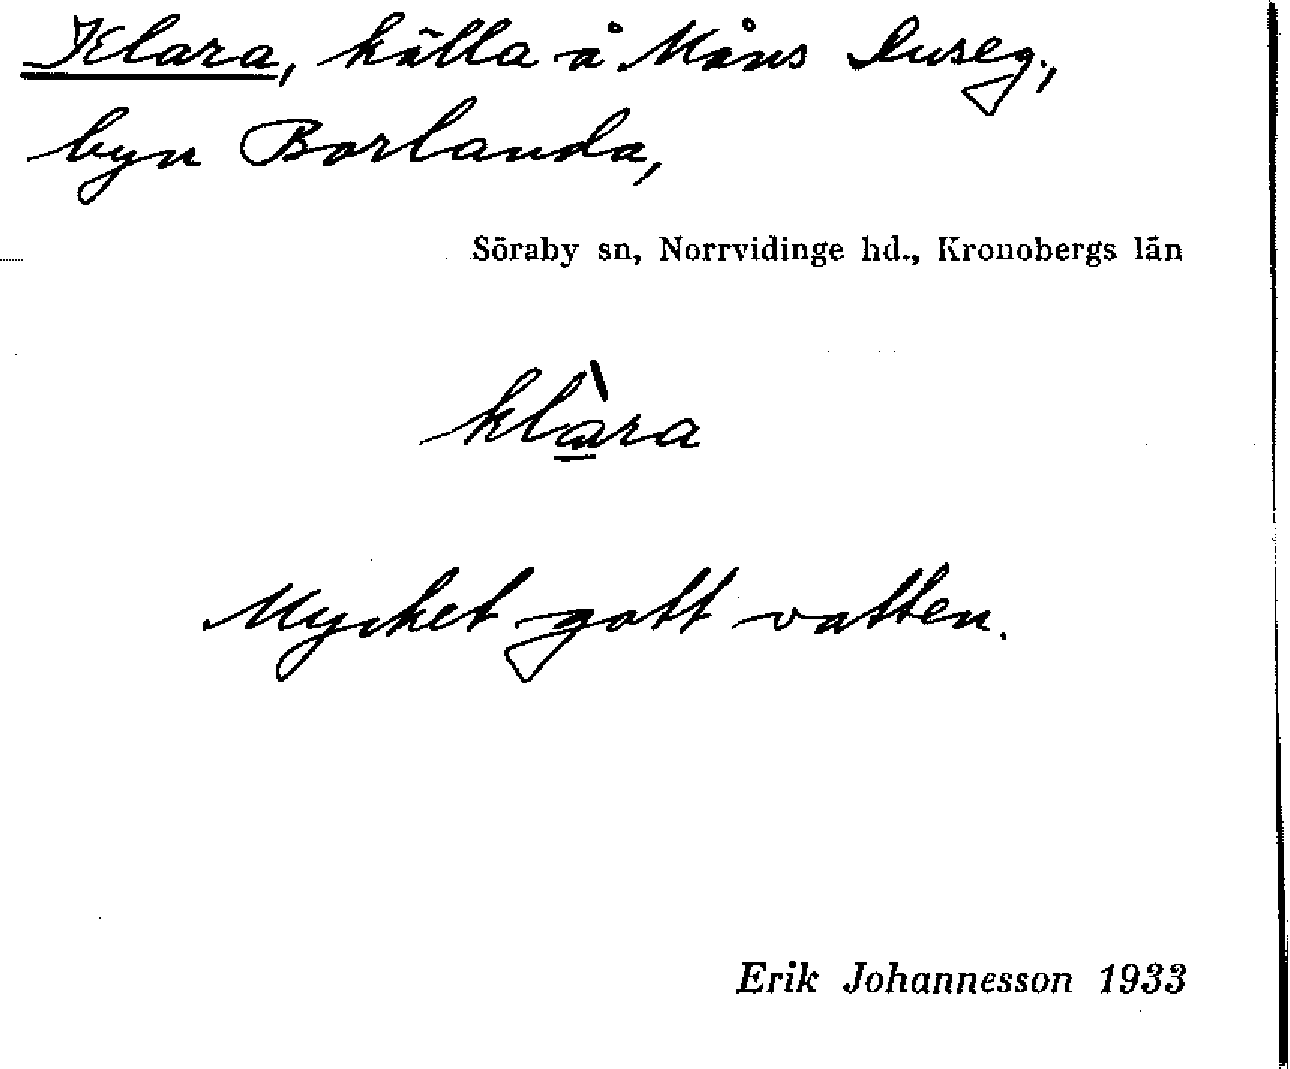 Klara, källa å Måns Luseg.,
byn Borlanda,
Söraby sn, Norrvidinge hd., Kronobergs län
klàra
Mycket gott vatten.
Erik Johannesson 1933